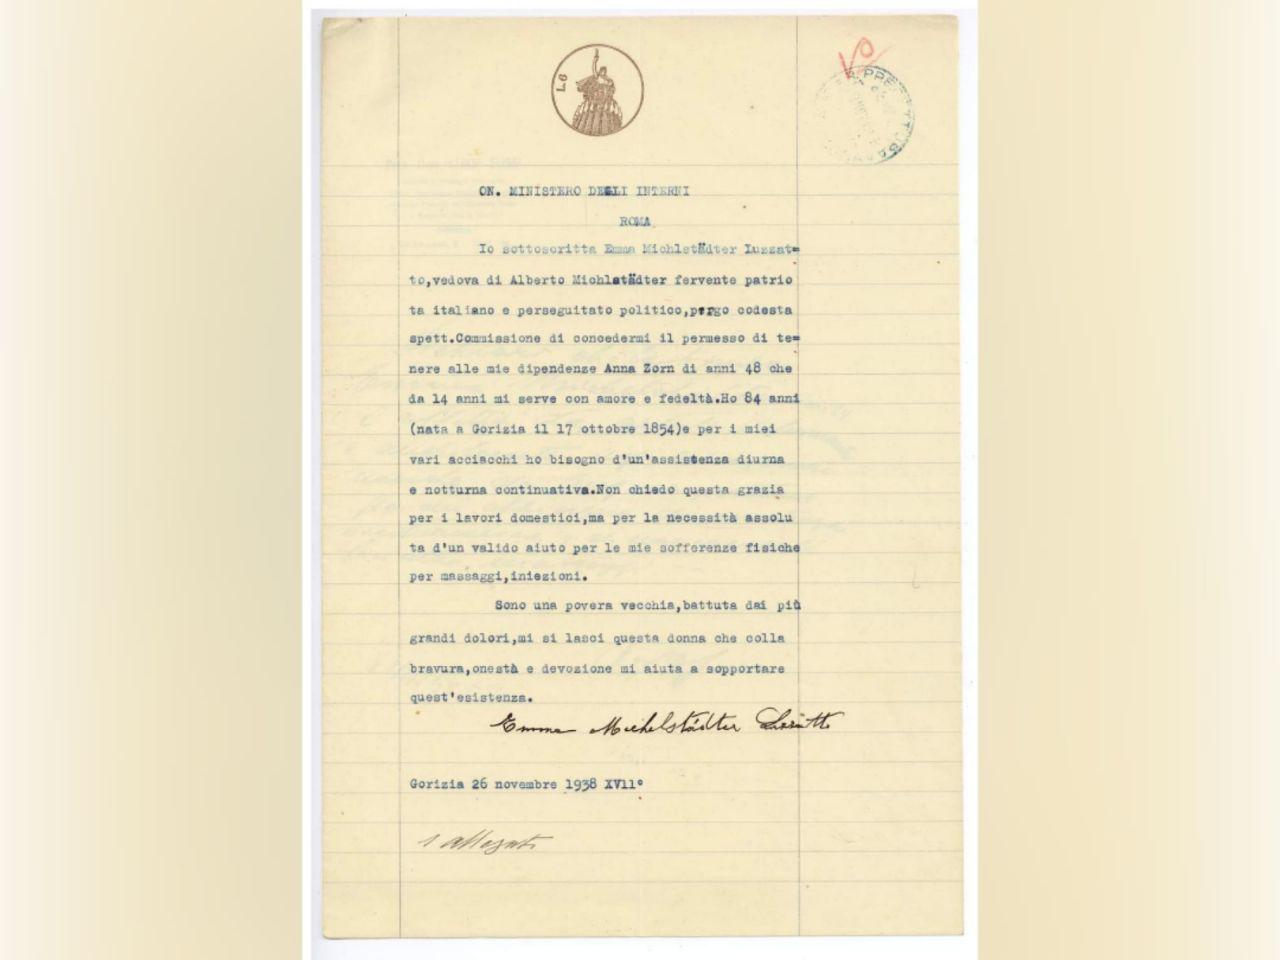 L.6
Vo
ON. MINISTERO DEGLI INTERNI
ROMA
Io sottoscritta Emma Michlstädter Luzzat=
to,vedova di Alberto Michlstädter fervente patrio
ta italiano e perseguitato politico,porgo codesta
spett.Commissione di concedermi il permesso di te=
nere alle mie dipendenze Anna Zorn di anni 48 che
da 14 anni mi serve con amore e fedeltà.Ho 84 anni
(nata a Gorizia il 17 ottobre 1854)e per i miei
vari acciacchi ho bisogno d'un'assistenza diurna
e notturna continuativa.Non chiedo questa grazia
per i lavori domestici,ma per la necessità assolu
ta d'un valido aiuto per le mie sofferenze fisiche
per massaggi,iniezioni.
Sono una povera vecchia,battuta dai più
grandi dolori,mi si lasci questa donna che colla
bravura,onestà e devozione mi aiuta a sopportare
quest'esistenza.
Emma Michelstädter
Gorizia 26 novembre 1938 XVII°
allegati